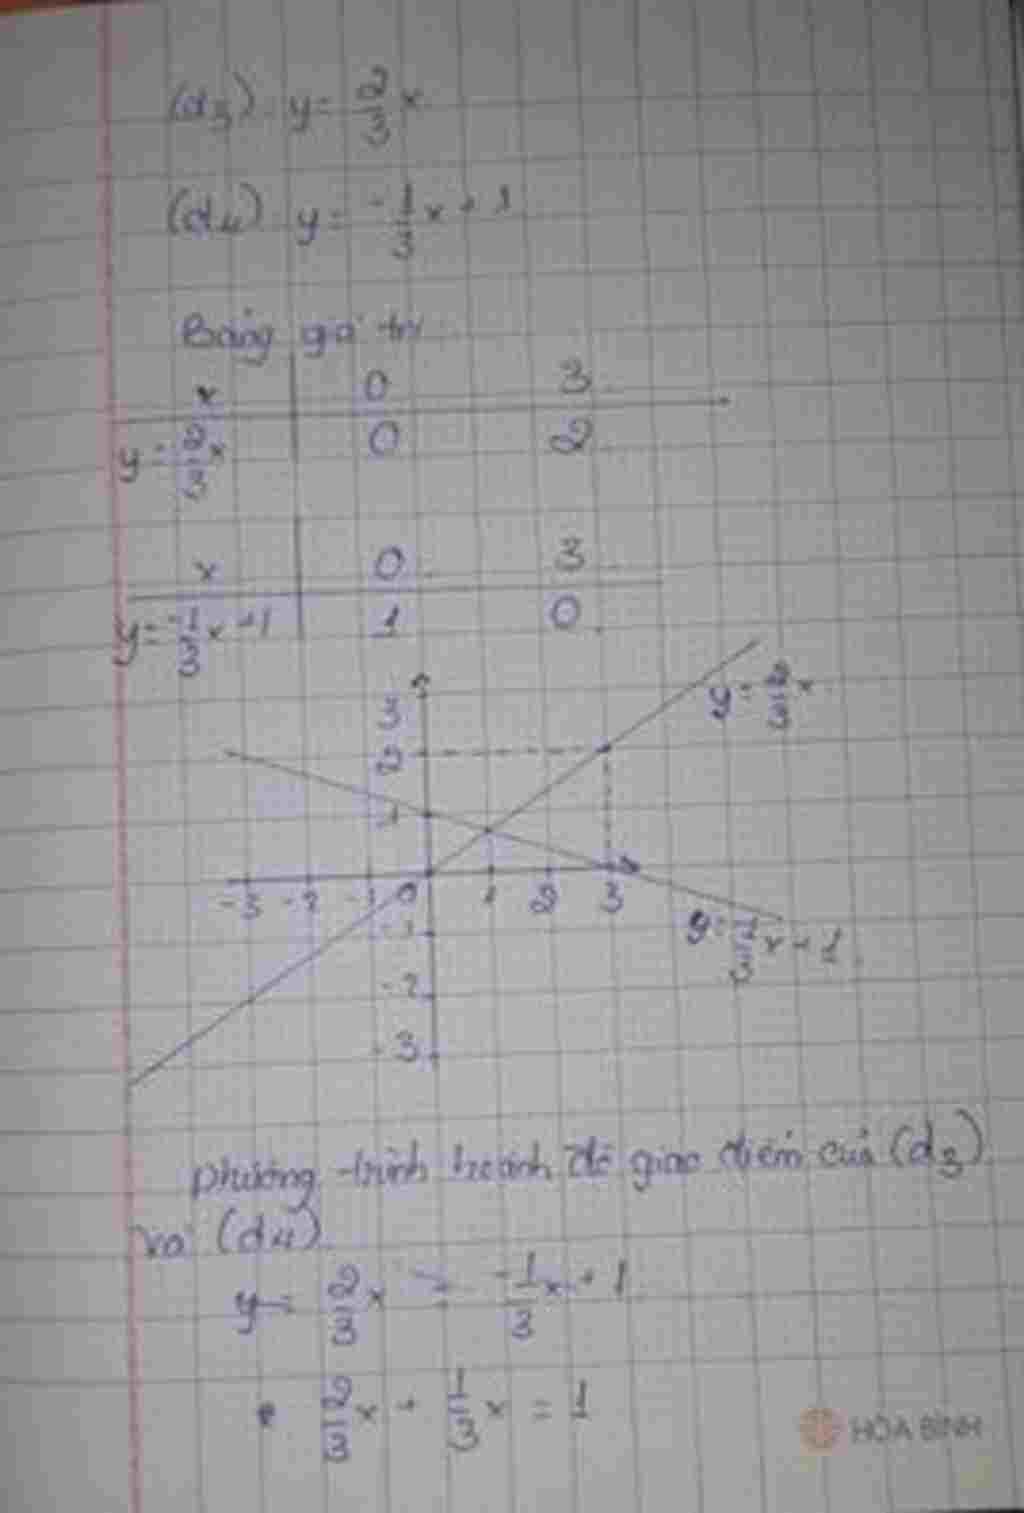 (d3) y = 2/3 x
(d4) y = -1/3 x + 1
Bảng giá trị
x 0 3
y = 2/3 x 0 2
x 0 3
y = -1/3 x + 1 1 0
3
2
1
-3 -2 -1 0 1 2 3
-1
-2
-3
y = 2/3 x
y = -1/3 x + 1
phương trình hoành độ giao điểm của (d3)
và (d4)
2/3 x = -1/3 x + 1
2/3 x + 1/3 x = 1
HÒA BÌNH